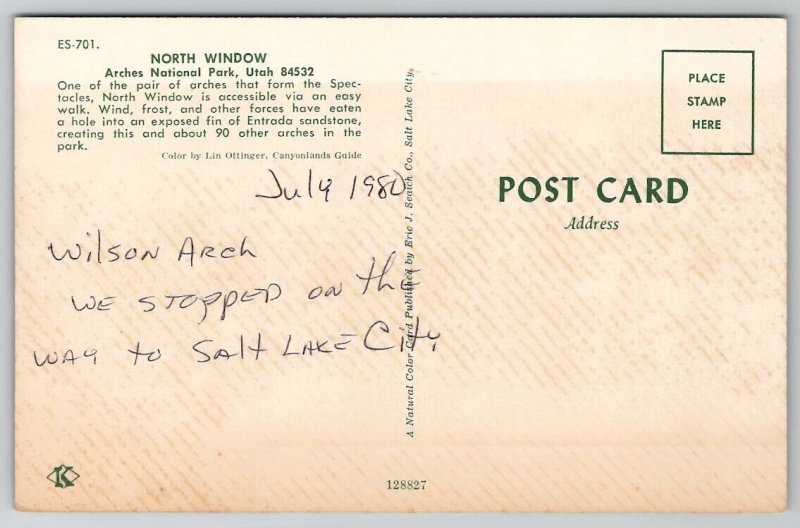 ES-701.
NORTH WINDOW
Arches National Park, Utah 84532
One of the pair of arches that form the Spec-
tacles, North Window is accessible via an easy
walk. Wind, frost, and other forces have eaten
a hole into an exposed fin of Entrada sandstone,
creating this and about 90 other arches in the
park.
Color by Lin Ottinger, Canyonlands Guide
July 1980
Wilson Arch
WE STOPPED ON the
WAY to Salt LAKE City
A Natural Color Card Published by Eric J. Seaich Co., Salt Lake City.
PLACE
STAMP
HERE
POST CARD
Address
K
128827